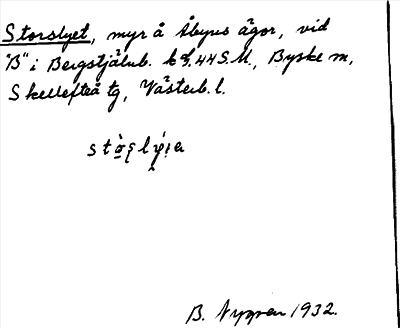 Storslyet, myr å Åbyns ägor, vid
"B" i Bergstjälnb. kbl. 44 S.M., Byske m,
Skellefteå tg, Västerb. l.
B. Nygren 1932.